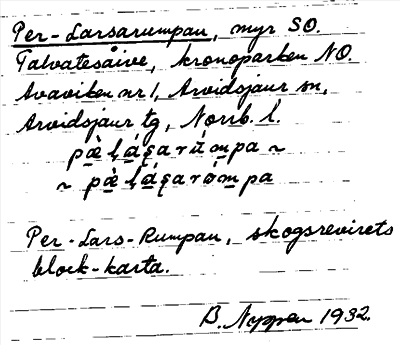 Per-Larsarumpan, myr SO.
Talvatesåive, kronoparken NO.
Avaviken nr 1, Arvidsjaur sn,
Arvidsjaur tg, Norrb. l.
pæ̀ḷá̱ṣarúm̱pa ~
~ pæ̀ḷá̱ṣaróm̱pa
Per-Lars-Rumpan, skogsrevirets
block-karta.
B. Nyppen 1932.